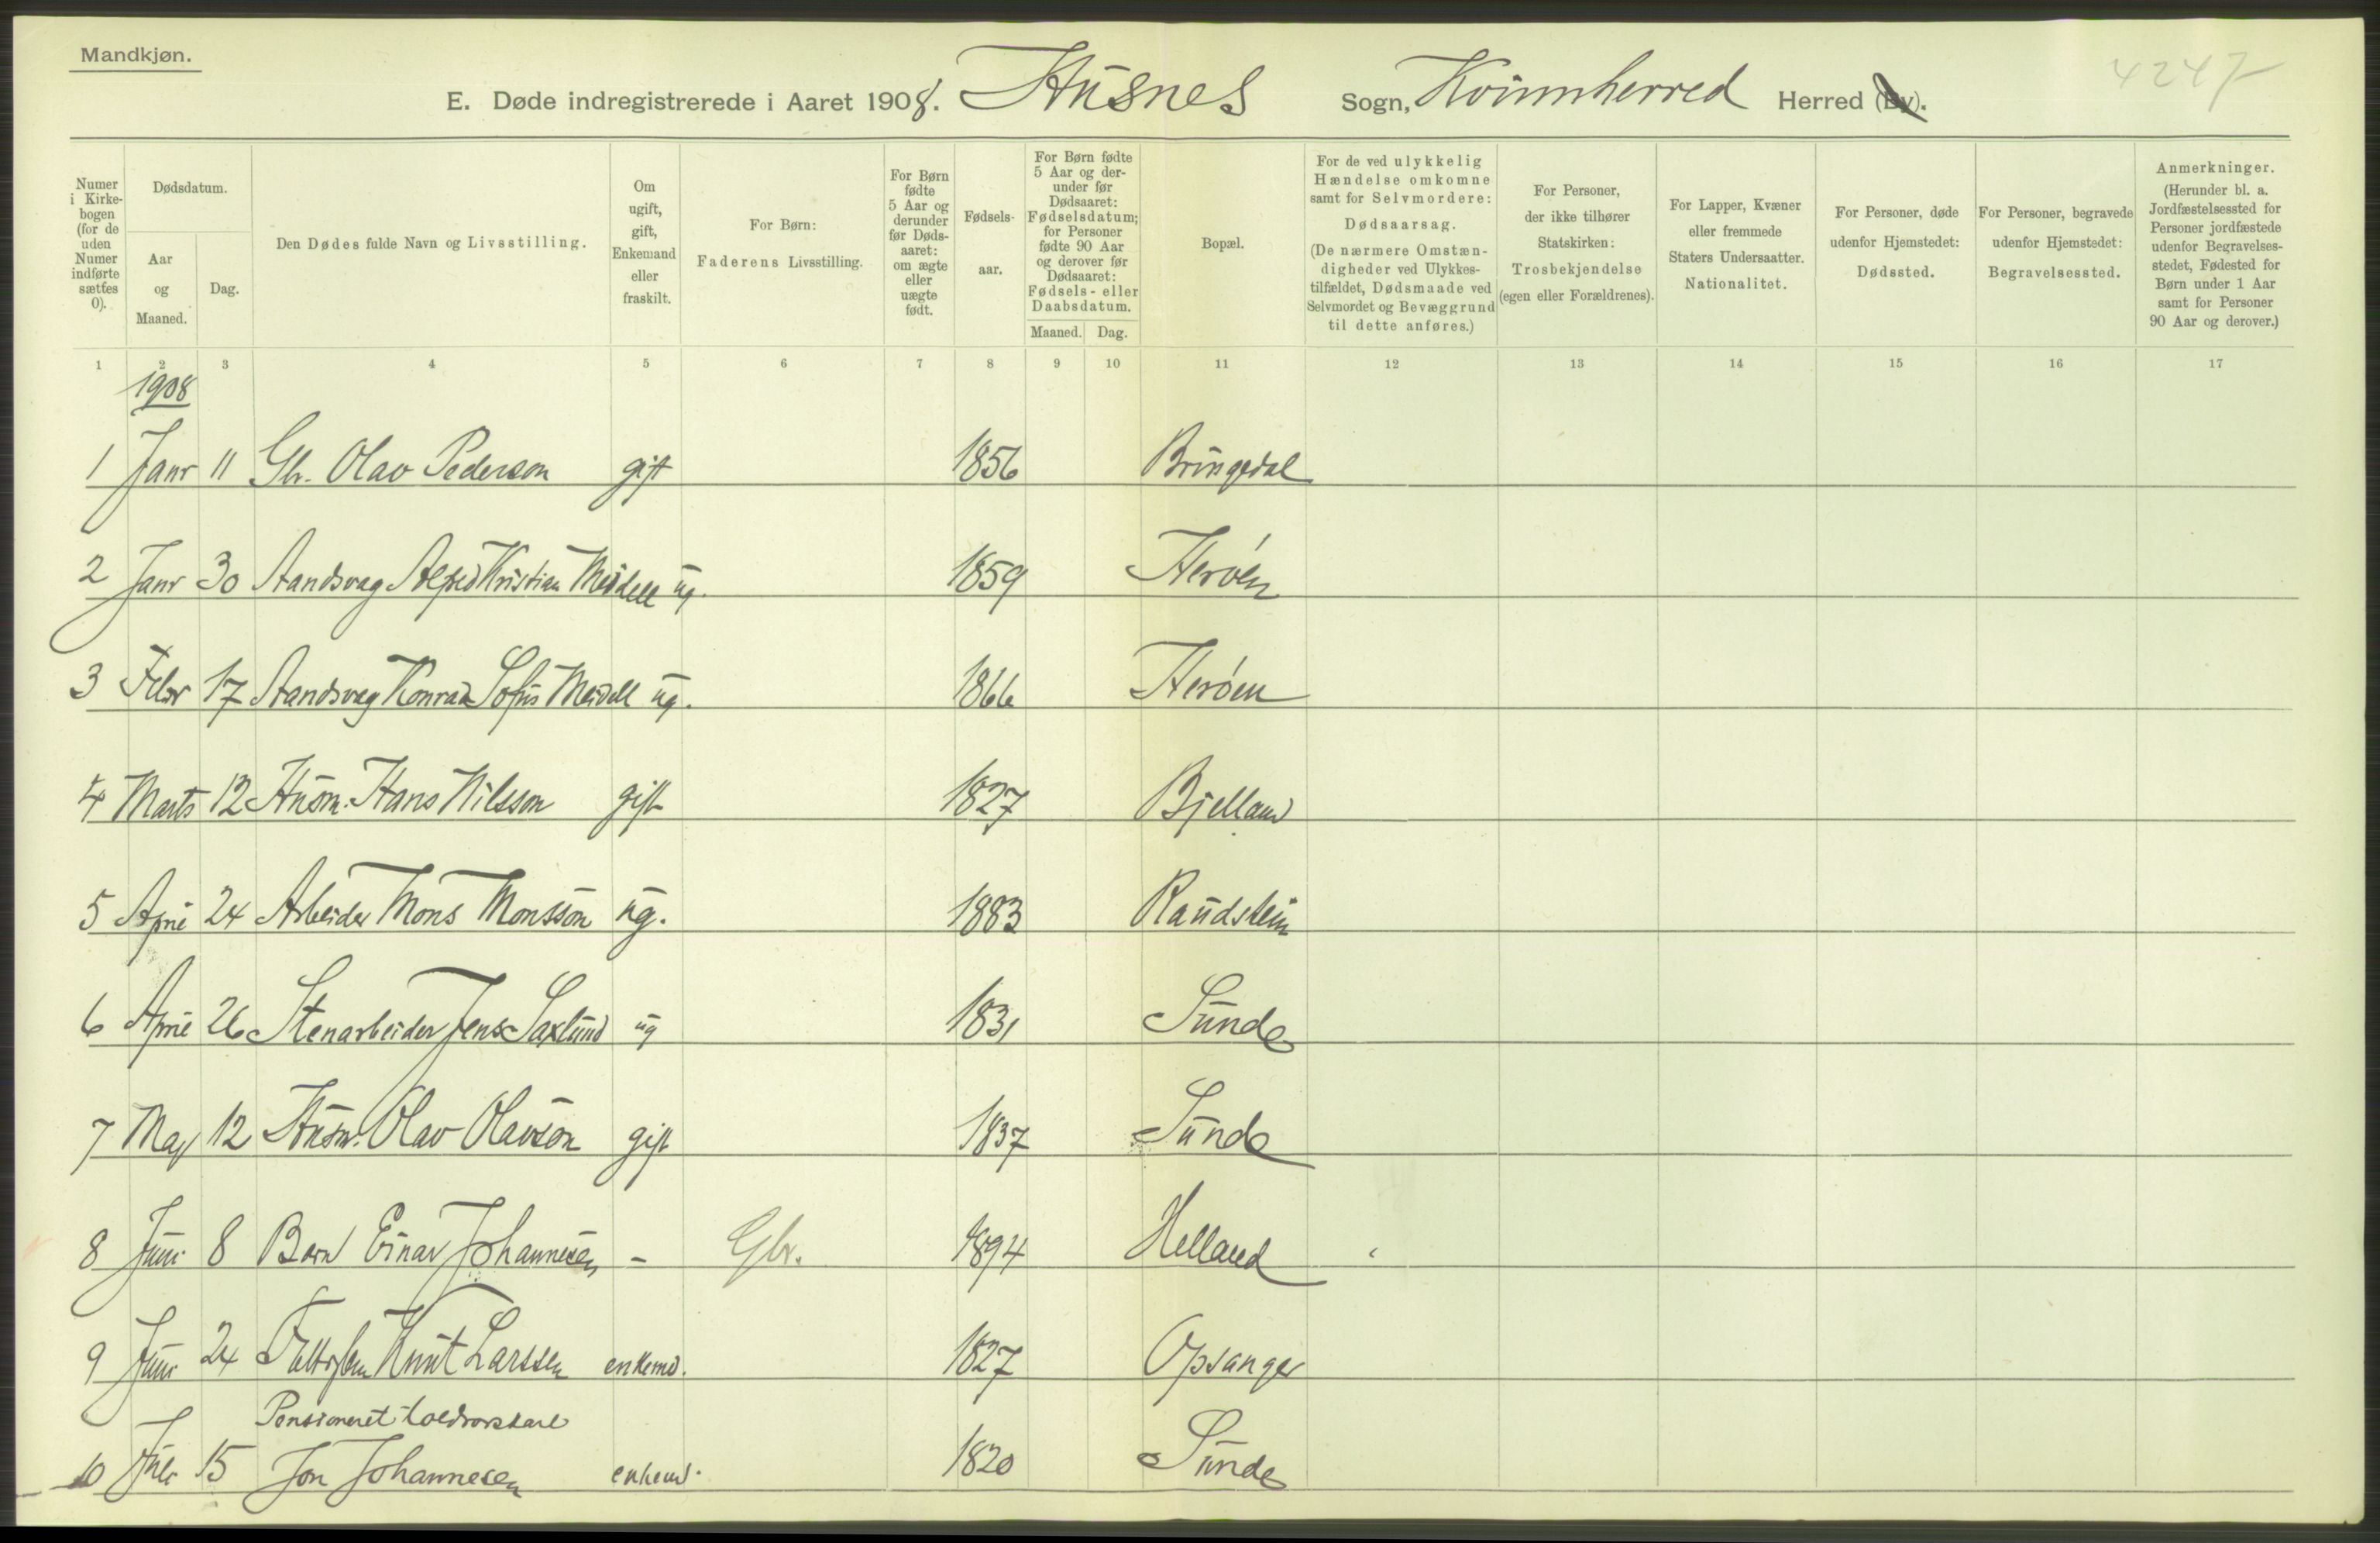 Mandkjøn.
4247
E. Døde indregistrerede i Aaret 1908. Husnes Sogn, Kvinnherred Herred (By).
Numer i Kirkebogen (for de uden Numer indførte sættes 0).
Dødsdatum.
Aar og Maaned.
Dag.
Den Dødes fulde Navn og Livsstilling.
Om ugift, gift, Enkemand eller fraskilt.
For Børn: Faderens Livsstilling.
For Børn fødte 5 Aar og derunder før Dødsaaret: om ægte eller uægte født.
Fødselsaar.
For Børn fødte 5 Aar og derunder før Dødsaaret: Fødselsdatum; for Personer fødte 90 Aar og derover før Dødsaaret: Fødsels- eller Daabsdatum.
Maaned. Dag.
Bopæl.
For de ved ulykkelig Hændelse omkomne samt for Selvmordere: Dødsaarsag. (De nærmere Omstændigheder ved Ulykkestilfældet, Dødsmaade ved Selvmordet og Bevæggrund til dette anføres.)
For Personer, der ikke tilhører Statskirken: Trosbekjendelse (egen eller Forældrenes).
For Lapper, Kvæner eller fremmede Staters Undersaatter. Nationalitet.
For Personer, døde udenfor Hjemstedet: Dødssted.
For Personer, begravede udenfor Hjemstedet: Begravelsessted.
Anmerkninger. (Herunder bl. a. Jordfæstelsessted for Personer jordfæstede udenfor Begravelsesstedet, Fødested for Børn under 1 Aar samt for Personer 90 Aar og derover.)
1 2 3 4 5 6 7 8 9 10 11 12 13 14 15 16 17
1908
1 Janr 11 Gbr. Olav Pederson gift 1856 Bringedal
2 Janr 30 Aandsvag Alfred Kristian Meidell ug. 1859 Herøen
3 Febr 17 Aandsvag Konrad Sofus Meidell ug. 1866 Herøen
4 Marts 12 Husm. Hans Nilsson gift 1827 Bjelland
5 April 24 Arbeider Mons Monsson ug. 1883 Raudstein
6 April 26 Stenarbeider Jens Saxlund ug 1831 Sunde
7 Maj 12 Husm. Olav Olavson gift 1837 Sunde
8 Juni 8 Barn Einar Johannesen - Gbr. 1894 Helland
9 Juni 24 Knut Larssen enkemd. 1827 Opsanger
Pensioneret toldrorskarl
10 Juli 15 Jon Johannesen enkemd. 1820 Sunde